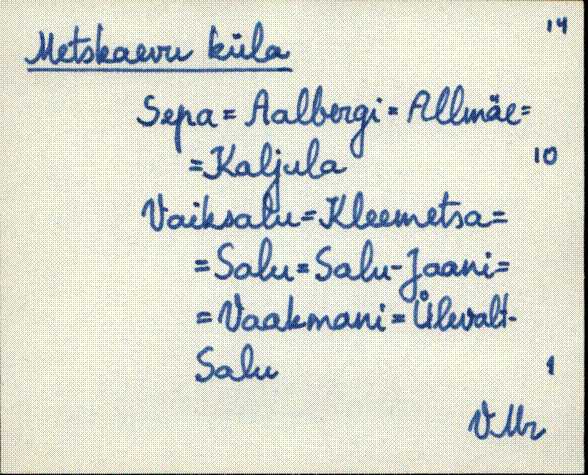 14
Metskaevu küla
Sepa = Aalbergi = Allmäe =
= Kaljula 10
Vaiksalu = Kleemetsa =
= Salu = Salu-Jaani =
= Vaakmani = Ülevalt-
Salu 1
VMr